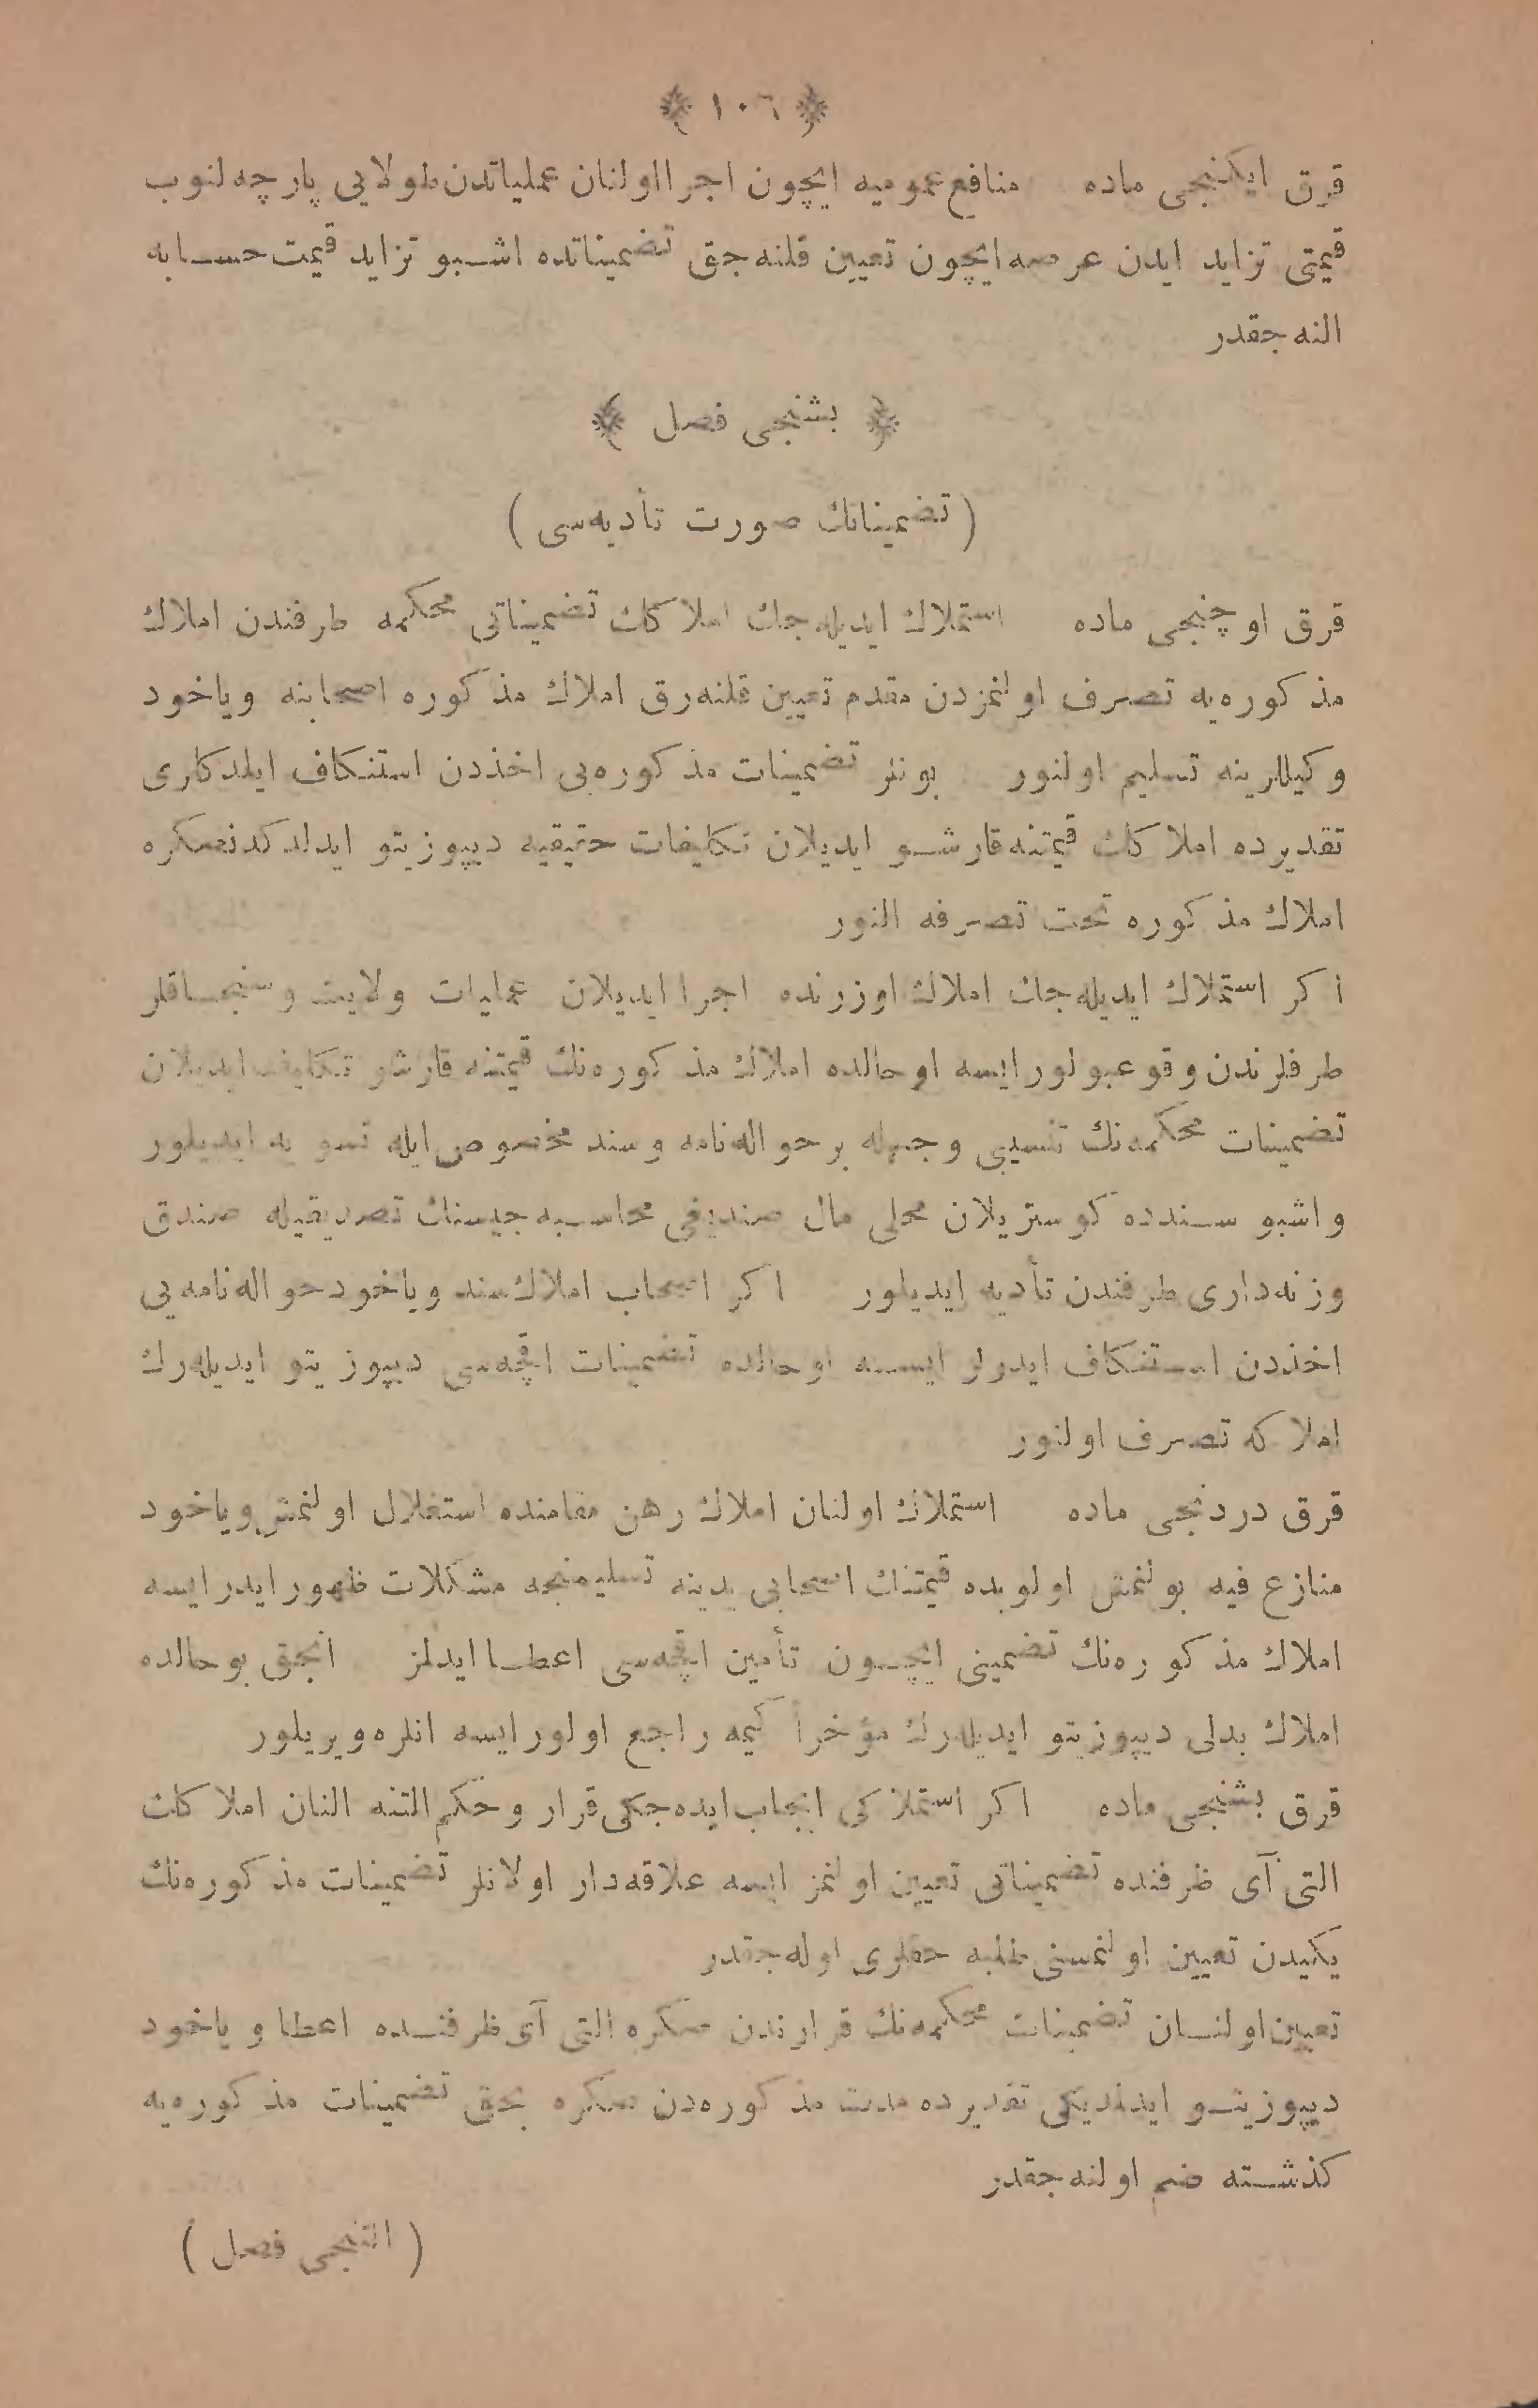 ﴿ ١٠٦ ﴾
قرق ایکنجی ماده منافع عمومیه ایچون اجرا اولنان عملیاتدن طولایی پارچه لنوب
قیمتی تزاید ایدن عرصه ایچون تعیین قلنه جق تضمیناتده اشبو تزاید قیمت حسابه
النه جقدر
﴿ بشنجی فصل ﴾
( تضمیناتك صورت تأدیه سی )
قرق اوچنجی ماده استملاك ایدیله جك املاكك تضمیناتی محکمه طرفندن املاك
مذکوره یه تصرف اولنمزدن مقدم تعیین قلنه رق املاك مذکوره اصحابنه ویاخود
وکیللرینه تسلیم اولنور بونلر تضمینات مذکوره یی اخذدن استنکاف ایلدکلری
تقدیرده املاكك قیمتنه قارشو ایدیلان تکلیفات حقیقیه دیپوزیتو ایدلدکدنصکره
املاك مذکوره تحت تصرفه النور
اکر استملاك ایدیله جك املاك اوزرنده اجرا ایدیلان عملیات ولایت وسنجاقلر
طرفلرندن وقوعبولور ایسه اوحالده املاك مذکوره نك قیمتنه قارشو تکلیف ایدیلان
تضمینات محکمه نك تنسیبی وجهله برحواله نامه وسند مخصوص ایله تسویه ایدیلور
واشبو سندده کوستریلان محلی مال صندیغی محاسبه جیسنك تصدیقیله صندق
وزنه داری طرفندن تأدیه ایدیلور اکر اصحاب املاك سند ویاخود حواله نامه یی
اخذدن استنکاف ایدرلر ایسه اوحالده تضمینات اقچه سی دیپوزیتو ایدیله رك
املاکه تصرف اولنور
قرق دردنجی ماده استملاك اولنان املاك رهن مقامنده استغلال اولنمش ویاخود
منازع فیه بولنمش اولوبده قیمتنك اصحابی یدینه تسلیمنجه مشکلات ظهور ایدر ایسه
املاك مذکوره نك تضمینی ایچون تأمین اقچه سی اعطا ایدلمز انجق بوحالده
املاك بدلی دیپوزیتو ایدیله رك مؤخراً کیمه راجع اولور ایسه انلره ویریلور
قرق بشنجی ماده اکر استملاکی ایجاب ایده جکی قرار وحکم التنه النان املاكك
التی آی ظرفنده تضمیناتی تعیین اولنمز ایسه علاقه دار اولانلر تضمینات مذکوره نك
یکیدن تعیین اولنمسنی طلبه حقلری اوله جقدر
تعیین اولنان تضمینات محکمه نك قرارندن صکره التی آی ظرفنده اعطا ویاخود
دیپوزیتو ایدلدیکی تقدیرده مدت مذکوره دن صکره بحق تضمینات مذکوره یه
کذشته ضم اولنه جقدر
( التنجی فصل )